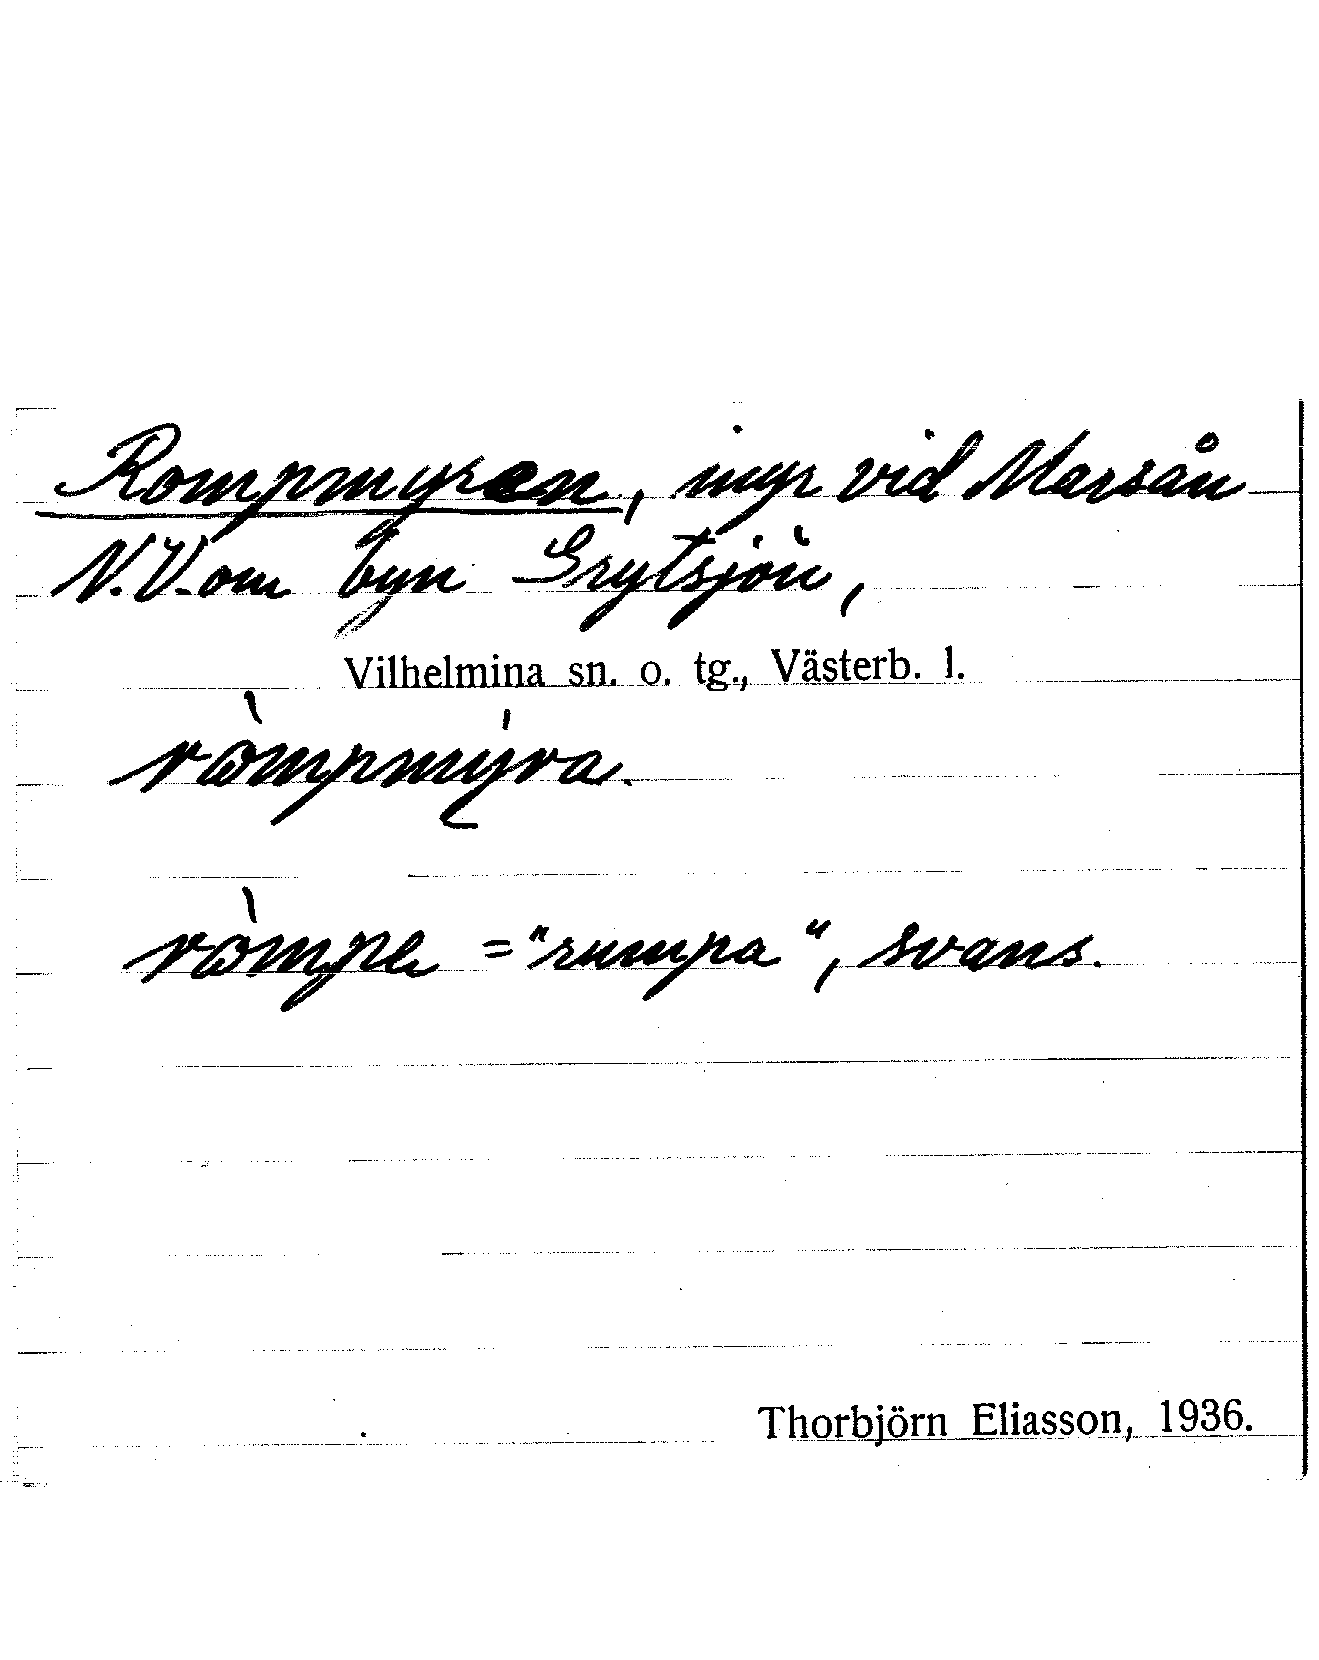 Rompmyren, myr vid Marsån
N.V. om byn Grytsjön,
Vilhelmina sn. o. tg., Västerb. l.
ròmpmýra.
ròmpe = "rumpa", svans.
Thorbjörn Eliasson, 1936.